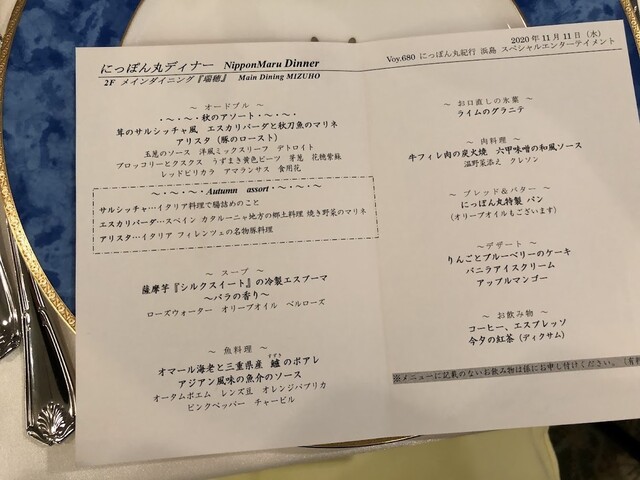 にっぽん丸ディナー NipponMaru Dinner
2F メインダイニング『瑞穂』 Main Dining MIZUHO
～ オードブル ～
・～・～・秋のアソート・～・～・
茸のサルシッチャ風 エスカリバーダと秋刀魚のマリネ
アリスタ（豚のロースト）
玉葱のソース 洋風ミックスリーフ デトロイト
ブロッコリーとクスクス うずまき黄色ビーツ 芽葱 花穂紫蘇
レッドピリカラ アマランサス 食用花
～・～・～・Autumn assort・～・～・～
サルシッチャ…イタリア料理で腸詰めのこと
エスカリバーダ…スペイン カタルーニャ地方の郷土料理 焼き野菜のマリネ
アリスタ…イタリア フィレンツェの名物豚料理
～ スープ ～
薩摩芋『シルクスイート』の冷製エスプーマ
～バラの香り～
ローズウォーター オリーブオイル ベルローズ
～ 魚料理 ～
オマール海老と三重県産 鱸のポアレ
すずき
アジアン風味の魚介のソース
オータムポエム レンズ豆 オレンジパプリカ
ピンクペッパー チャービル
2020年11月11日（水）
Voy.680 にっぽん丸紀行 浜島 スペシャルエンターテイメント
～ お口直しの氷菓 ～
ライムのグラニテ
～ 肉料理 ～
牛フィレ肉の炭火焼 六甲味噌の和風ソース
温野菜添え クレソン
～ ブレッド＆バター ～
にっぽん丸特製 パン
（オリーブオイルもございます）
～デザート ～
りんごとブルーベリーのケーキ
バニラアイスクリーム
アップルマンゴー
～ お飲み物 ～
コーヒー、エスプレッソ
今夕の紅茶（ディクサム）
※メニューに記載のないお飲み物は係にお申し付けください。（有料